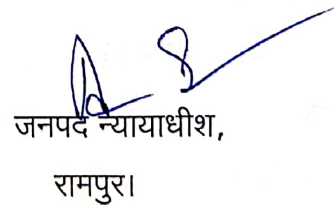 जनपद न्यायाधीश,
रामपुर।